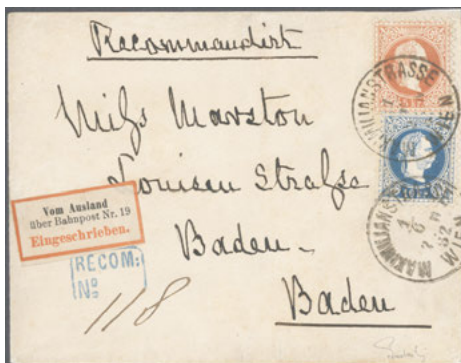 Recommandirt
Miss Marston
Louisen Strasse
Baden
Baden
Vom Ausland
über Bahnpost Nr. 19
Eingeschrieben.
RECOM:
No
118
MAXIMILIANSTRASSE WIEN
MAXIMILIANSTRASSE WIEN